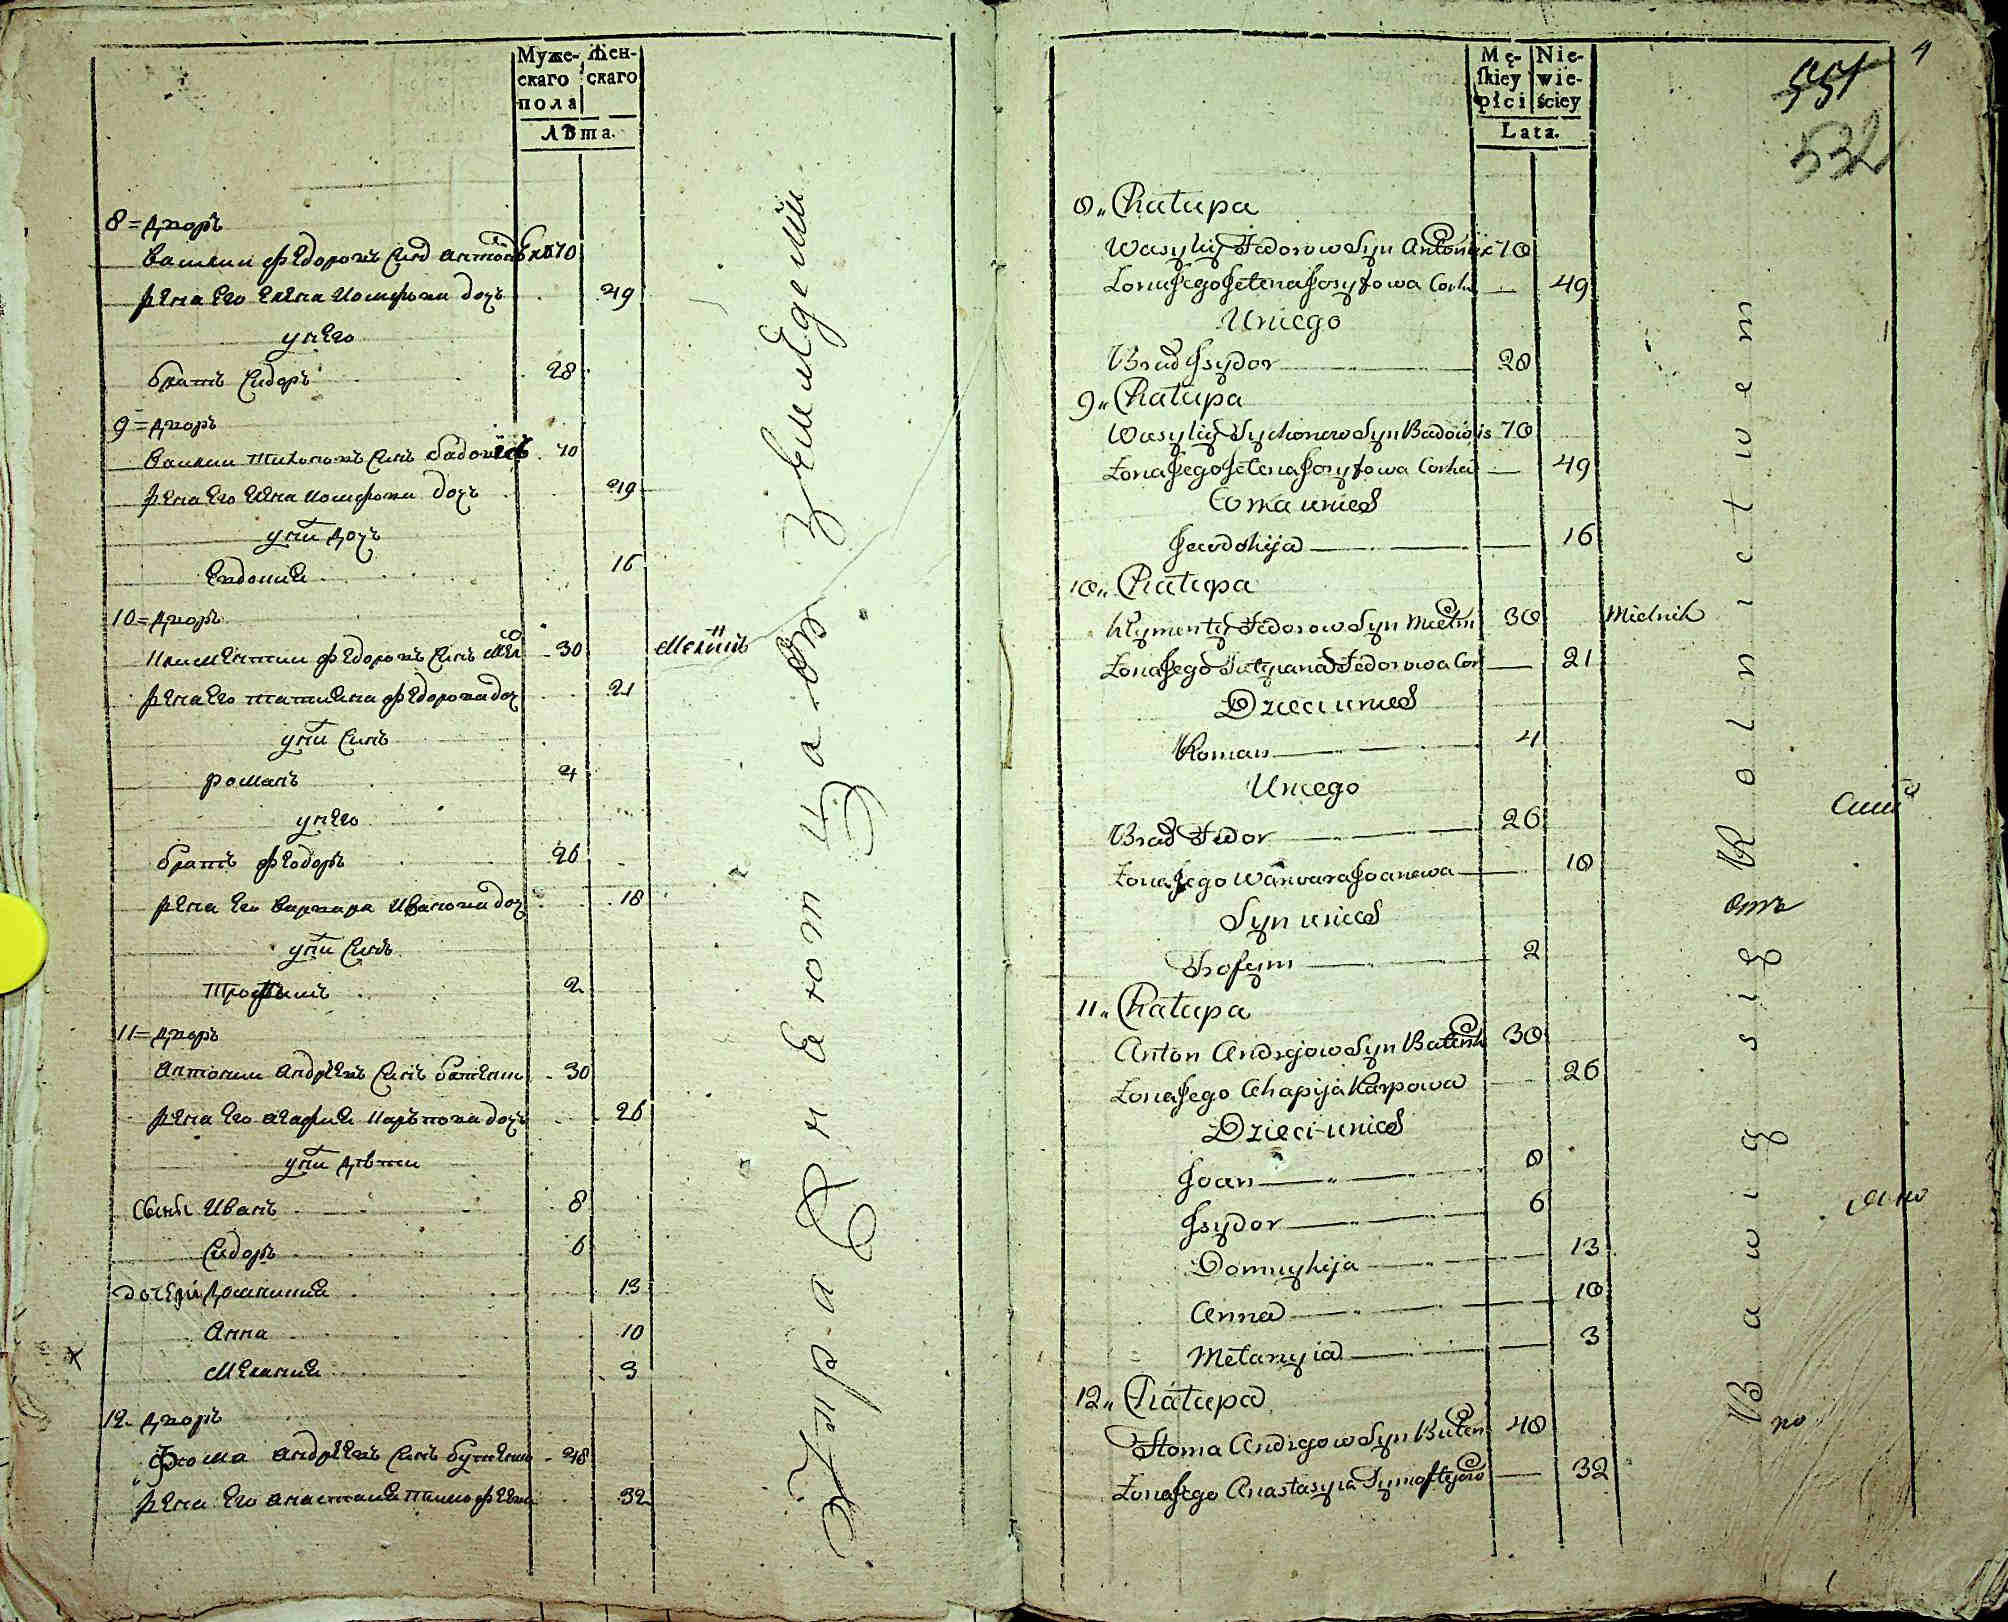 Муже-
скаго
пола
Жен-
скаго
Лѣта.
8 = дворъ
Василий Федоровъ Синъ 70
жена Его Елена Иосифова дочъ 49
у него
братъ Сидоръ 28
9 = дворъ
Василий Тихоновъ Синъ 70
жена Его Елена Иосифова дочъ 49
у них дочъ
Евдокия 16
10 = дворъ
Климентий Федоровъ Синъ 30
жена Его татияна Федорова доч 21
у них Синъ
романъ 4
у него
братъ Феодоръ 26
жена Его Варвара Иванова доч 18
у них Синъ
Трофимъ 2
11 = дворъ
Антоний Андреевъ Синъ 30
жена Его агафия Карпова дочъ 26
у них дѣти
Сыны Иванъ 8
Сидоръ 6
дочери Домникия 13
Анна 10
Мелания 3
12 = дворъ
Фома Андреевъ Синъ 48
жена Его анастасия 32
Мелник
Упражняютца въ земледелии
Mę-
skiey
płci
Nie-
wie-
ściey
Lata.
4
551
532
8 „ Chałupa
Wasyliy Fedorow Syn 70
Zona Jego Jelena Josyfowa Corka — 49
U niego
Brad Jsydor — 28
9 „ Chałupa
Wasyliy Tychonow Syn 70
Zona Jego Jelena Josyfowa Corka — 49
Corka u nich
Jewdokija — 16
10 „ Chałupa
Klymentiy Fedorow Syn 30 Mielnik
Zona Jego Tatyiana Fedorowa Cor — 21
Dzieci u nich
Roman — 4
U niego
Brad Fedor — 26
Zona Jego Warwara Joanowa — 18
Syn u nich
Trofym — 2
11 „ Chałupa
Anton Andrejow Syn 30
Zona Jego Ahapija Karpowa — 26
Dzieci u nich
Joan — 8
Jsydor — 6
Domnykija — 13
Anna — 10
Melanyia — 3
12 „ Chałupa
Homa Andrejow Syn 48
Zona Jego Anastasyia — 32
Bawią się Rolnictwem
отъ
по